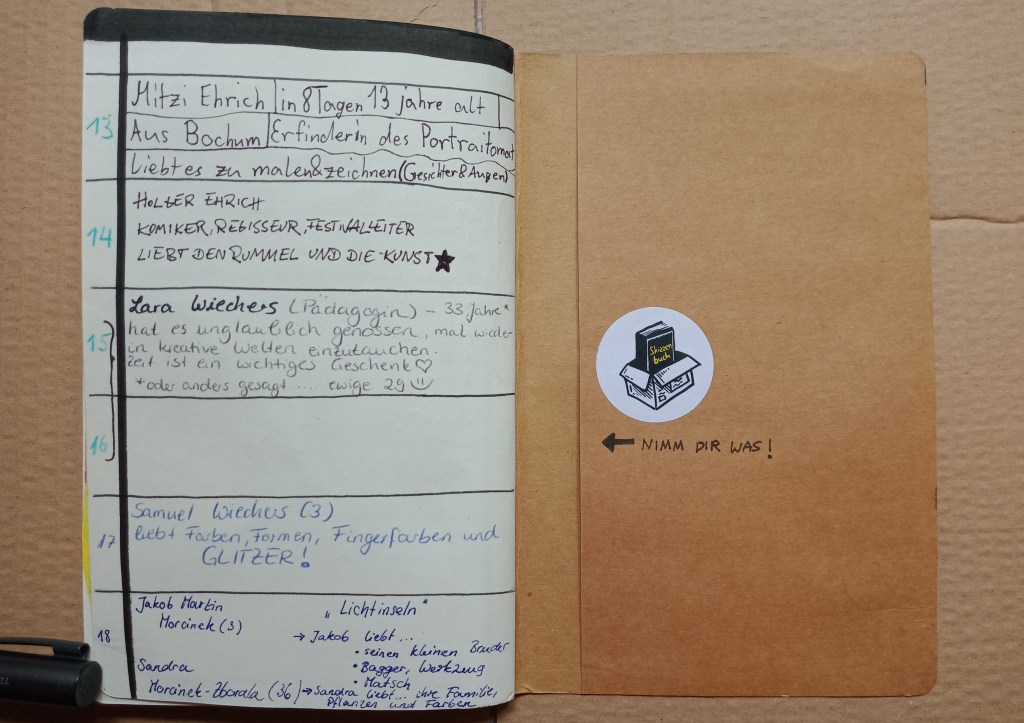 13
Mitzi Ehrich in 8 Tagen 13 jahre alt
Aus Bochum Erfinderin des Portraitomat
Liebt es zu malen & zeichnen (Gesichter & Augen)
14
HOLGER EHRICH
KOMIKER, REGISSEUR, FESTIVALLEITER
LIEBT DEN RUMMEL UND DIE KUNST
15
Lara Wiechers (Pädagogin) – 33 Jahre*
hat es unglaublich genossen, mal wieder
in kreative Welten einzutauchen.
Zeit ist ein wichtiges Geschenk ♡
*oder anders gesagt .... ewige 29
16
17
Samuel Wiechers (3)
liebt Farben, Formen, Fingerfarben und
GLITZER!
18
Jakob Martin
Morcinek (3)
„Lichtinseln"
→ Jakob liebt...
• seinen kleinen Bruder
• Bagger, Werkzeug
• Matsch
Sandra
Morcinek-Zborala (36)
→ Sandra liebt... ihre Familie,
Pflanzen und Farben
Skizzen
buch
← NIMM DIR WAS!